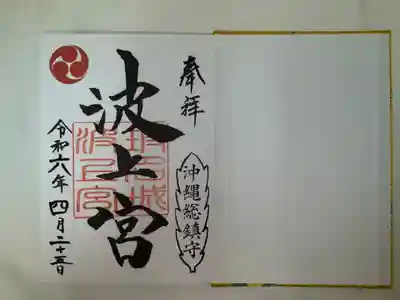 奉拝
沖縄総鎮守
波上宮
波上宮
令和六年四月二十五日